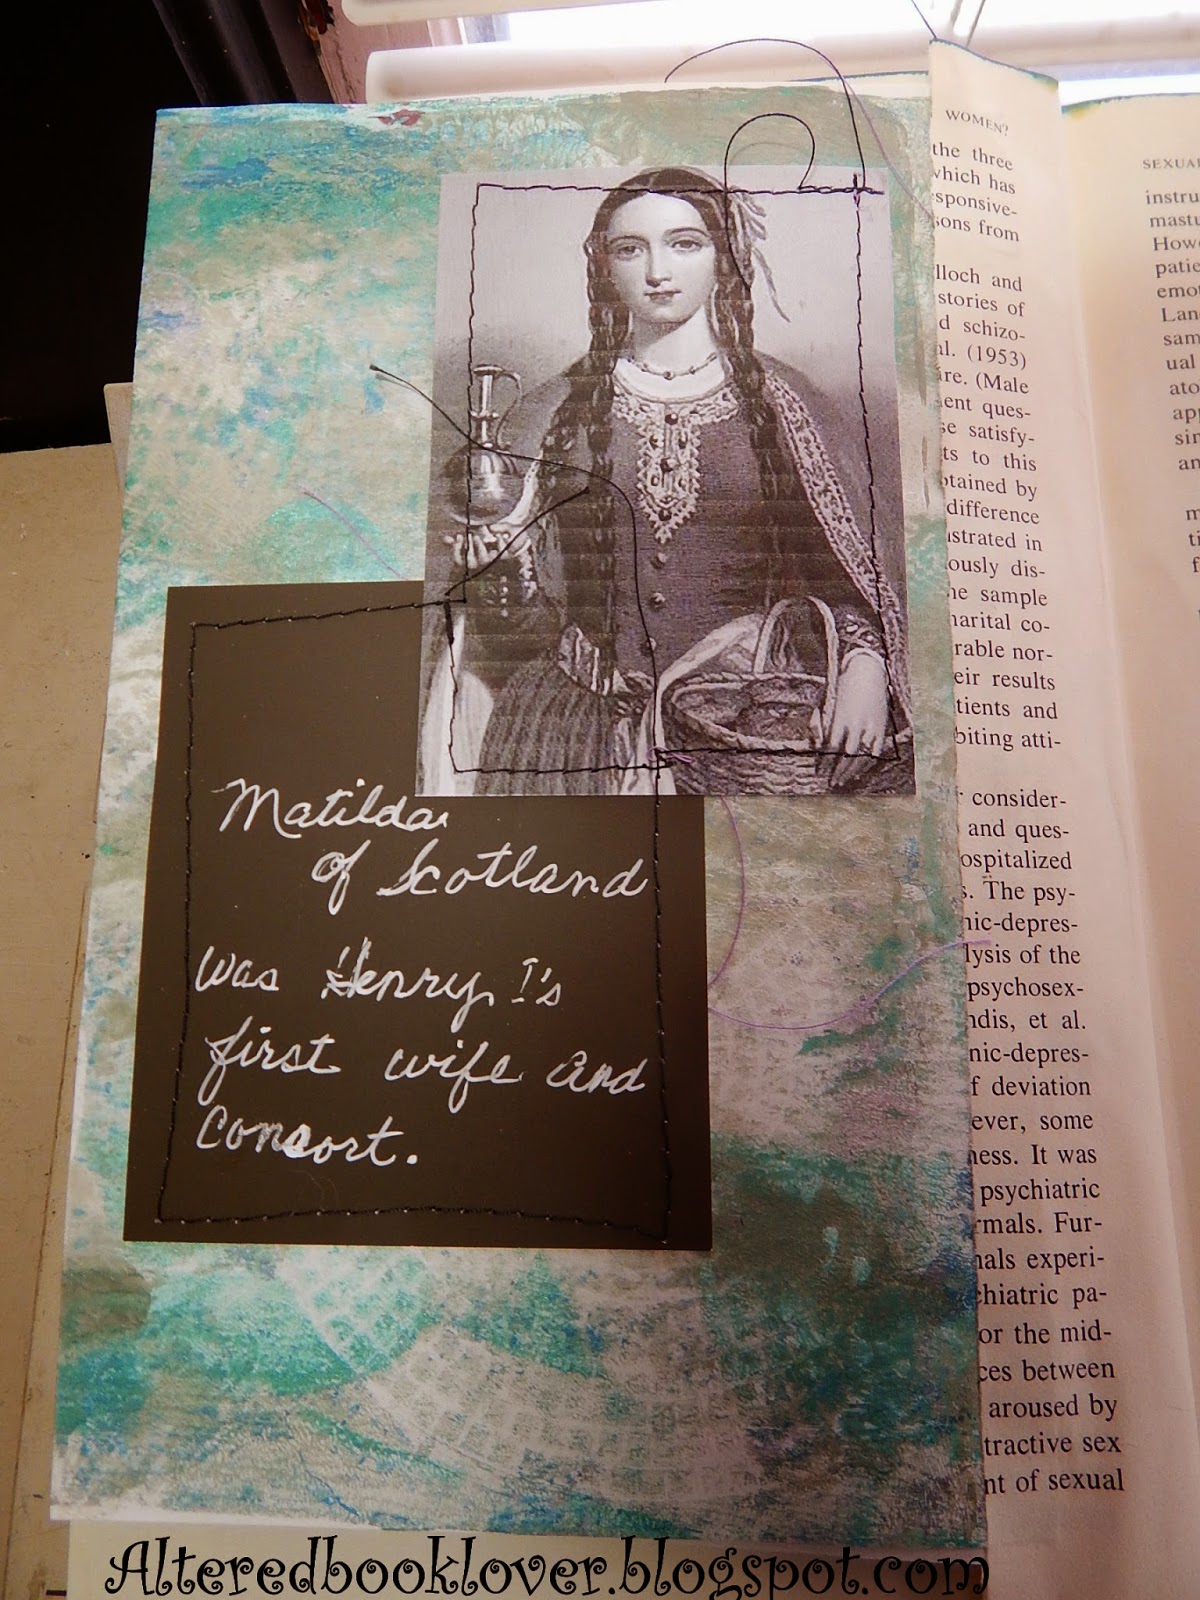 Matilda
of Scotland
was Henry I's
first wife and
consort.
WOMEN?
the three
which has
sponsive-
sons from
lloch and
stories of
d schizo-
al. (1953)
re. (Male
ent ques-
se satisfy-
ts to this
btained by
difference
strated in
ously dis-
he sample
marital co-
rable nor-
eir results
tients and
biting atti-
consider-
and ques-
ospitalized
s. The psy-
nic-depres-
lysis of the
psychosex-
ndis, et al.
nic-depres-
f deviation
ever, some
ness. It was
psychiatric
rmals. Fur-
nals experi-
chiatric pa-
or the mid-
ces between
aroused by
tractive sex
nt of sexual
SEXUA
instru
mastu
Howe
patie
emot
Lan
sam
ual
ato
app
sin
an
m
ti
f
Alteredbooklover.blogspot.com